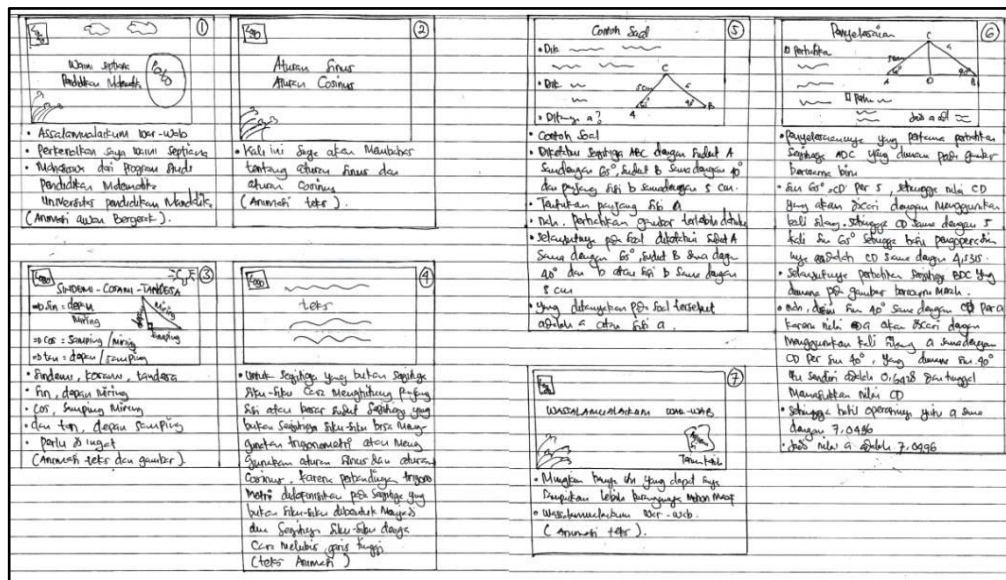 ①
Logo
Waini Septiana
Pendidikan Matematika
Foto
• Assalamualaikum war-wab
• Perkenalkan saya Waini Septiana
• Mahasiswi dari Program Studi
Pendidikan Matematika
Universitas pendidikan Mandalika
(Animasi awan bergerak).
②
Logo
Aturan Sinus
Aturan Cosinus
• Kali ini saya akan Membahas
tentang aturan Sinus dan
aturan Cosinus
(Animasi teks)
③
Logo
SINDEMI - COSAMI - TANDESA
⇒ Sin = depan
Miring
Miring
Samping
⇒ cos = samping/miring
⇒ tan = depan/samping
• Sindemi, kosami, tandesa
• Sin, depan miring
• Cos, samping Miring
• dan tan, depan samping
• perlu di ingat
(Animasi teks dan gambar).
④
Logo
teks
• Untuk segitiga yang bukan segitiga
siku-siku cara Menghitung panjang
sisi atau besar sudut segitiga yang
bukan segitiga siku-siku bisa meng-
gunakan trigonometri atau Meng
gunakan aturan sinus dan aturan
Cosinus, karena perbandingan trigono
Metri didefinisikan pada segitiga yang
bukan siku-siku dibentuk Menjadi
dua segitiga siku-siku dengan
Cara melukis garis tinggi
(teks Animasi)
⑤
Contoh Soal
• Dik
• Dit
C
5 cm
a
65°
40°
A
B
• Ditanya a?
• Contoh Soal
• Diketahui segitiga ABC dengan sudut A
samadengan 65°, sudut B sama dengan 40°
dan panjang sisi b samadengan 5 cm.
• Tentukan panjang sisi a
• nah, Perhatikan gambar terlebih dahulu
• selanjutnya pada soal diketahui sudut A
sama dengan 65°, sudut B sama dengan
40° dan b atau sisi b sama dengan
5 cm
• Yang ditanyakan pada soal tersebut
adalah a atau sisi a.
⑥
Penyelesaian
Perhatikan
C
5 cm
a
65°
40°
A
D
B
Jadi a adl
• Penyelesaiannya yang pertama perhatikan
segitiga ADC yang dimana pada gambar
berwarna biru
• Sin 65° = CD per 5, sehingga nilai CD
yang akan dicari dengan menggunakan
kali silang, sehingga CD sama dengan 5
kali sin 65° sehingga hasil pengoperasian
nya adalah CD sama dengan 4,5315.
• selanjutnya perhatikan segitiga BDC yang
dimana pada gambar berwarna Merah.
• nah, disini sin 40° sama dengan CD per a
karena nilai a akan dicari dengan
Menggunakan kali silang a samadengan
CD per sin 40°, yang dimana sin 40°
itu sendiri adalah 0,6428 dan tinggal
Memasukkan nilai CD
• sehingga hasil operasinya yaitu a sama
dengan 7,0496
• Jadi nilai a adalah 7,0496
⑦
Logo
WASSALAMUALAIKUM WAR-WAB
Terima kasih
• Mungkin hanya ini yang dapat saya
sampaikan lebih kurangnya Mohon Maaf
• Wassalamualaikum War-wab.
(Animasi teks).